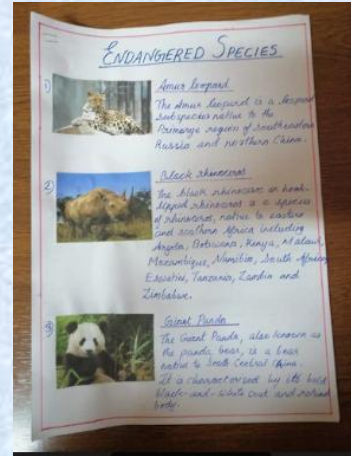 ENDANGERED SPECIES
1)
Amur leopard
The Amur leopard is a leopard
subspecies native to the
Primorye region of southeastern
Russia and northern China.
2)
Black rhinoceros
The black rhinoceros or hook-
lipped rhinoceros is a species
of rhinoceros, native to eastern
and southern Africa including
Angola, Botswana, Kenya, Malawi,
Mozambique, Namibia, South Africa,
Eswatini, Tanzania, Zambia and
Zimbabwe.
3)
Giant Panda
The Giant Panda, also known as
the panda bear, is a bear
native to South Central China.
It is characterised by its bold
black-and-white coat and rotund
body.